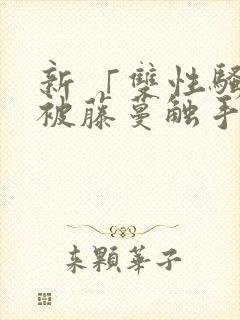 新「雙性騷
被藤蔓触手
来顆華子